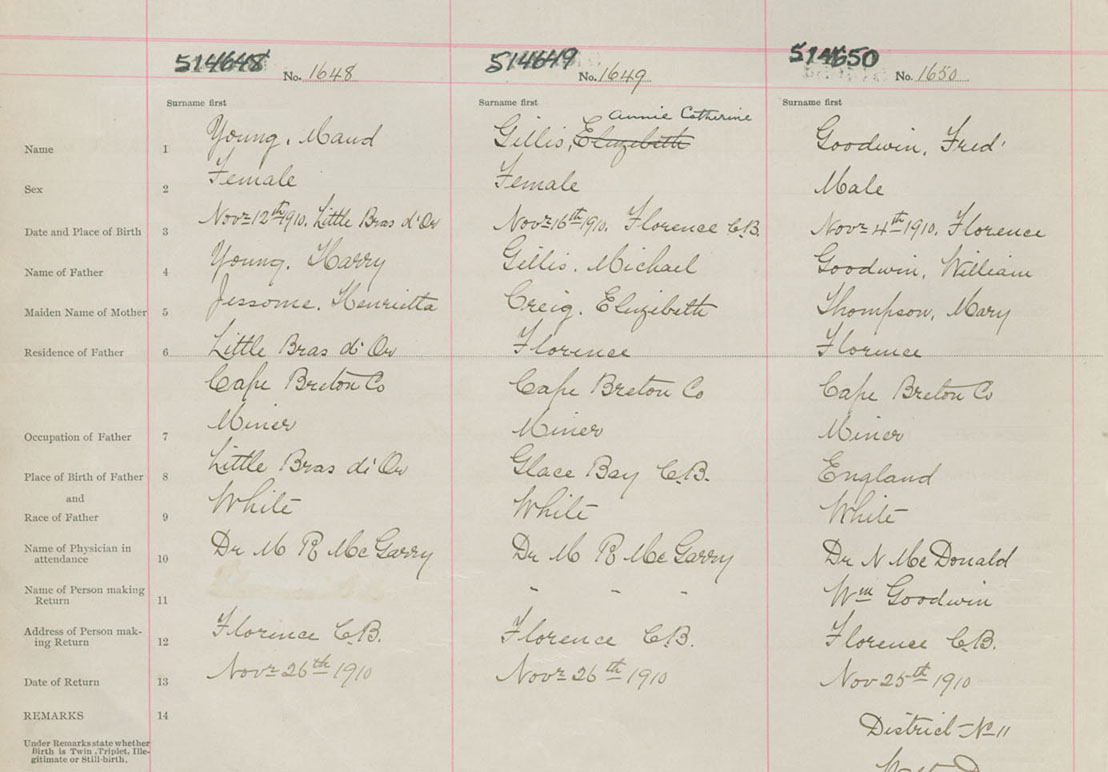 514648 No. 1648 514649 No. 1649 514650 No. 1650
Surname first Surname first Surname first
Annie Catherine
Name 1 Young, Maud Gillis, Elizibeth Goodwin, Fred'
Sex 2 Female Female Male
Date and Place of Birth 3 Novr 12th 1910, Little Bras d'Or Novr 16th 1910. Florence C.B. Novr 4th 1910, Florence
Name of Father 4 Young, Harry Gillis, Michael Goodwin, William
Maiden Name of Mother 5 Jessome, Henrietta Creig, Elizibeth Thompson, Mary
Residence of Father 6 Little Bras di Or Florence Florence
Cape Breton Co Cape Breton Co Cape Breton Co
Occupation of Father 7 Miner Miner Miner
Place of Birth of Father 8 Little Bras di Or Glace Bay C.B. England
and
Race of Father 9 White White White
Name of Physician in
attendance 10 Dr M R McGarry Dr M R McGarry Dr N McDonald
Name of Person making
Return 11 " " " Wm Goodwin
Address of Person mak-
ing Return 12 Florence C.B. Florence C.B. Florence C.B.
Date of Return 13 Novr 26th 1910 Novr 26th 1910 Nov 25th 1910
REMARKS 14
District No 11
Under Remarks state whether
Birth is Twin, Triplet, Ille-
gitimate or Still-birth.